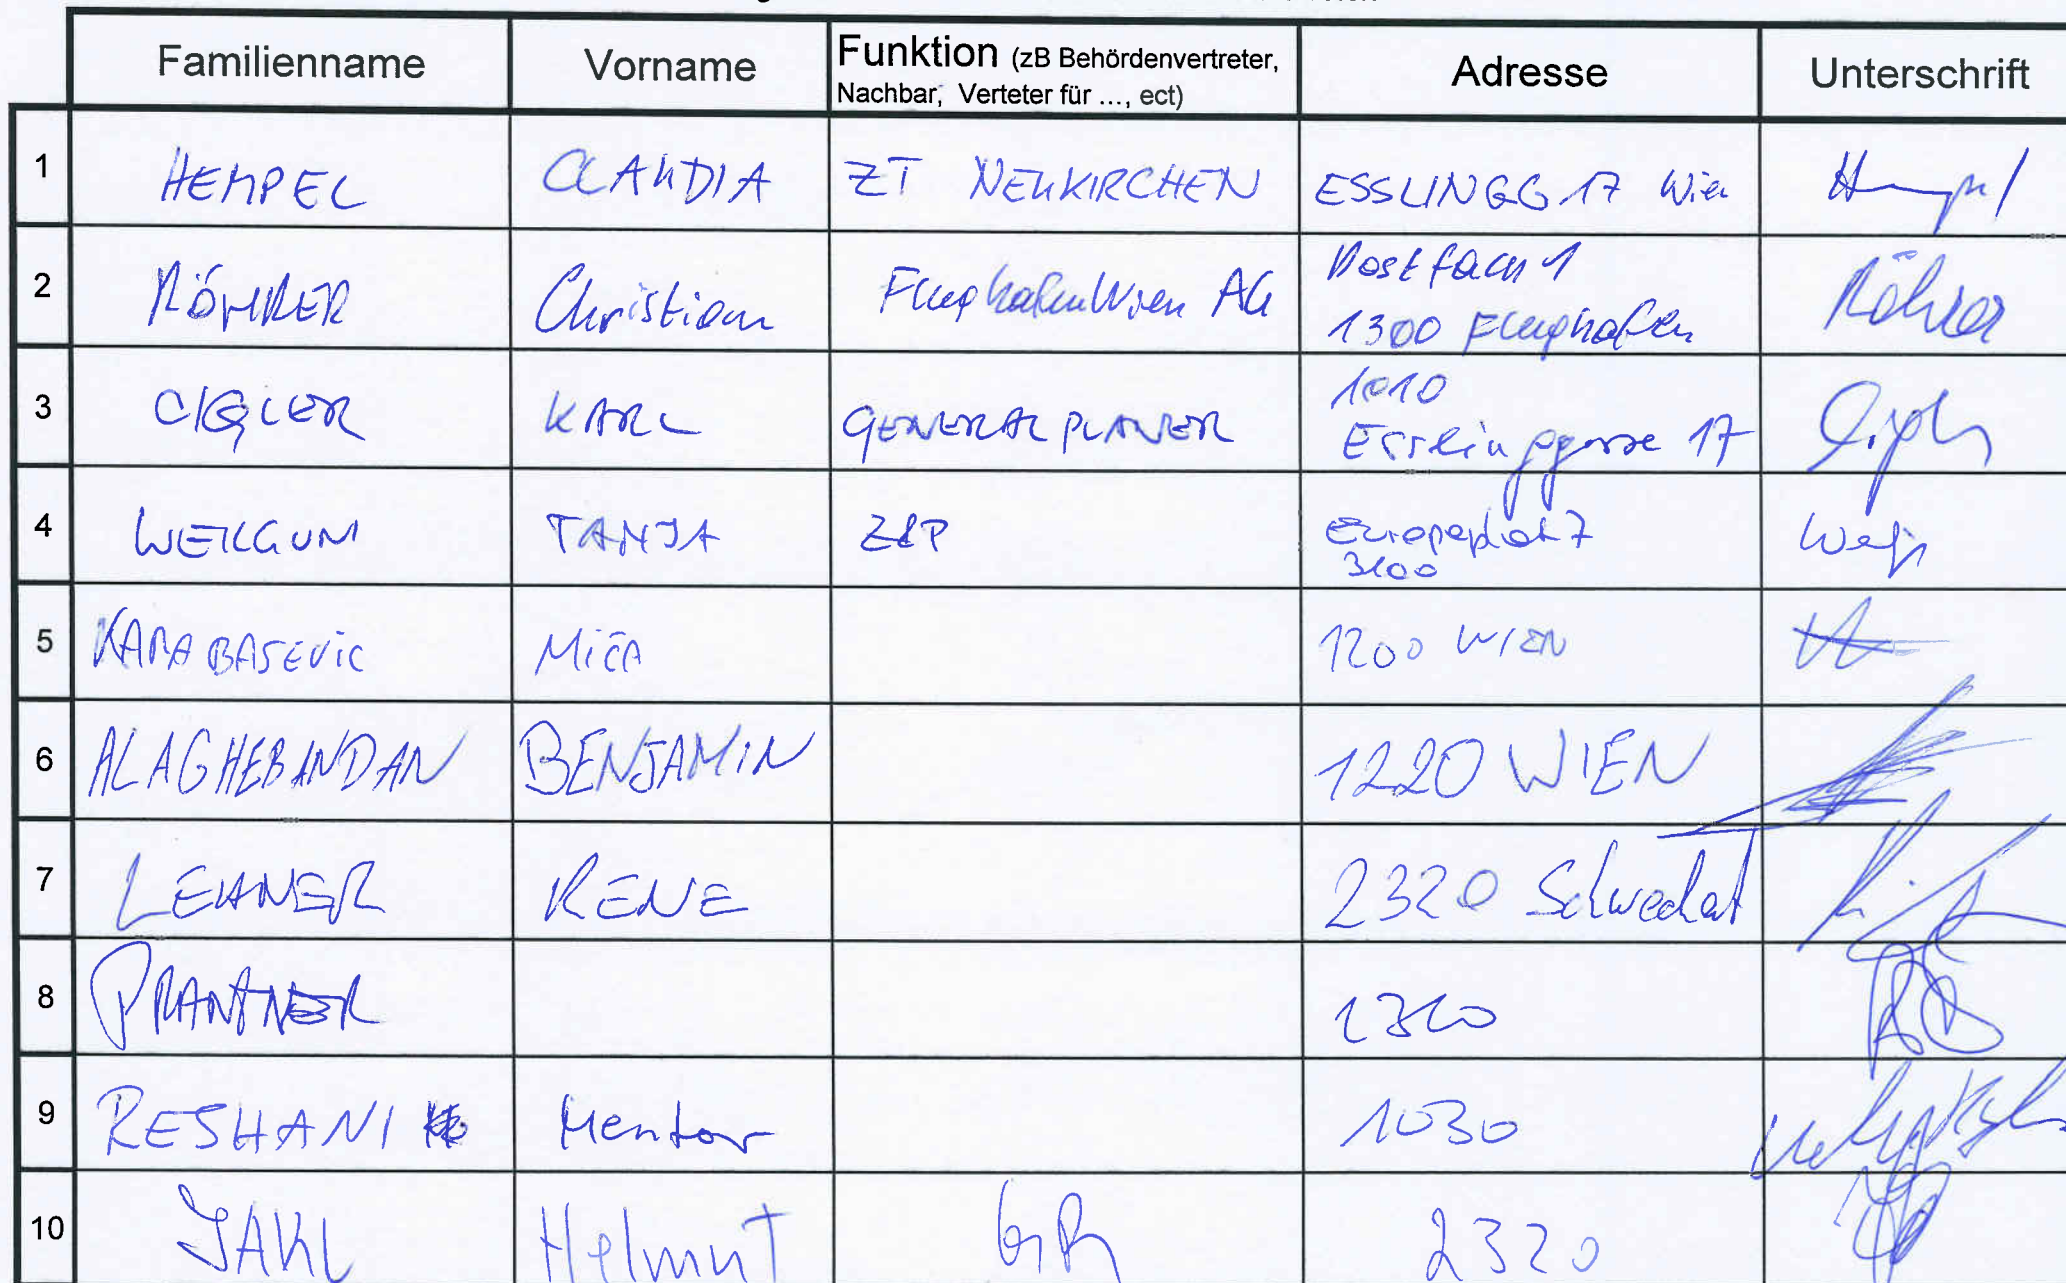 Familienname Vorname Funktion (zB Behördenvertreter, Nachbar, Verteter für ..., ect) Adresse Unterschrift
1 HEMPEL CLAUDIA ZT NEUKIRCHEN ESSLINGG 17 Wien Hempel
2 RÖHRER Christian Flughafen Wien AG Postfach 1
1300 Flughafen Röhrer
3 CIGLER KARL GENERALPLANER 1010
Esslinggasse 17
4 TANJA Europaplatz 7
3100
5 KARABASEVIC MIĆA 1200 WIEN
6 ALAGHEBANDAN BENJAMIN 1220 WIEN
7 LEHNER RENE 2320 Schwechat
8 PRANTNER
9 RESHANI Mentor 1030
10 JAKL Helmut GR 2320